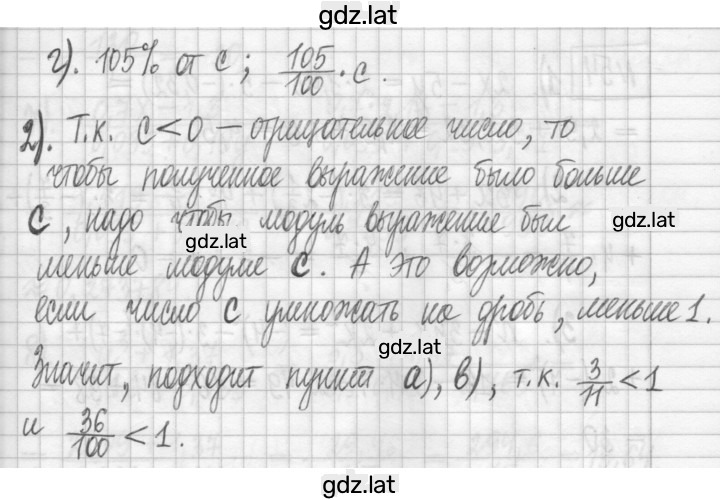 gdz.lat
г). 105% от c; 105/100 · c.
2). Т.к. c<0 – отрицательное число, то
чтобы полученное выражение было больше
c, надо чтобы модуль выражение был
gdz.lat
gdz.lat
меньше модуле c. А это возможно,
если число c умножать на дробь, меньше 1.
gdz.lat
Значит, подходит пункт а), в), т.к. 3/11 < 1
и 36/100 < 1.
gdz.lat